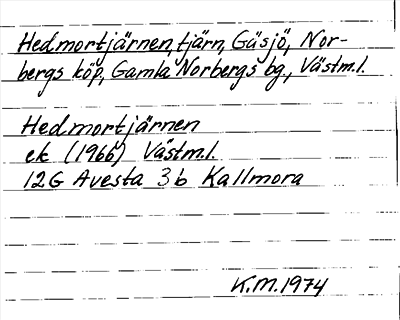 Hedmortjärnen, tjärn, Gäsjö, Nor-
bergs köp, Gamla Norbergs bg., Västm.l.
Hedmortjärnen
ek (1966) Västm.l.
12G Avesta 3b Kallmora
K.M. 1974